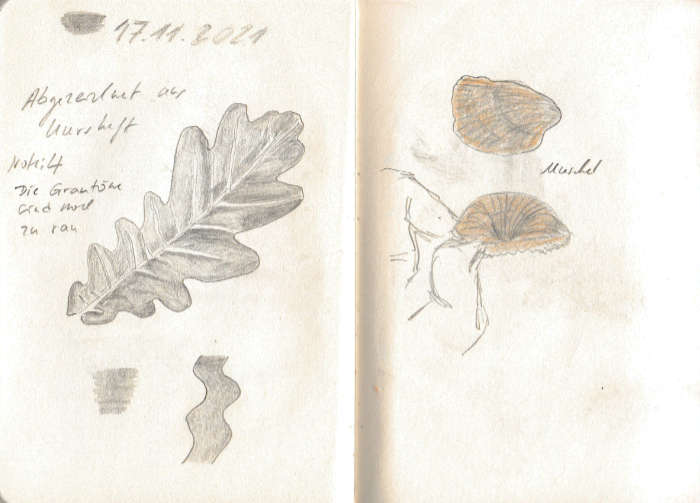 17.11.2021
Abgezeichnet aus
Kursheft
Notiz
Die Grautöne
sind noch
zu rau
Muschel